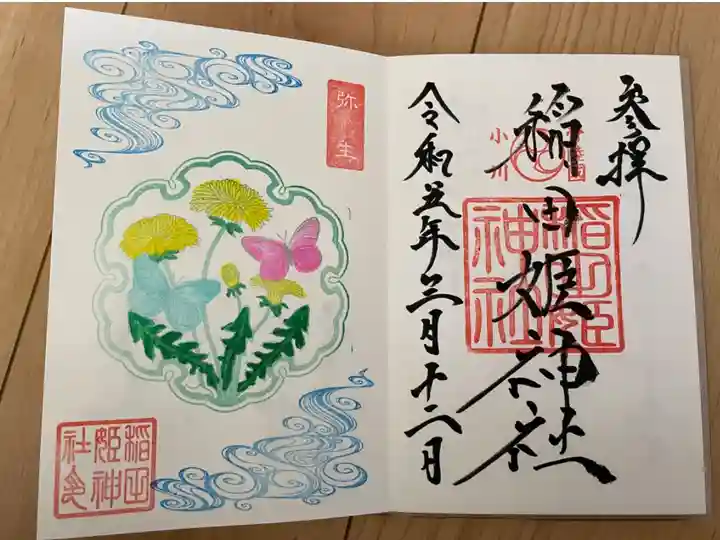 奉拝
稲田姫神社
令和五年三月十二月
小川
稲田姫神社
弥生
稲田姫神社